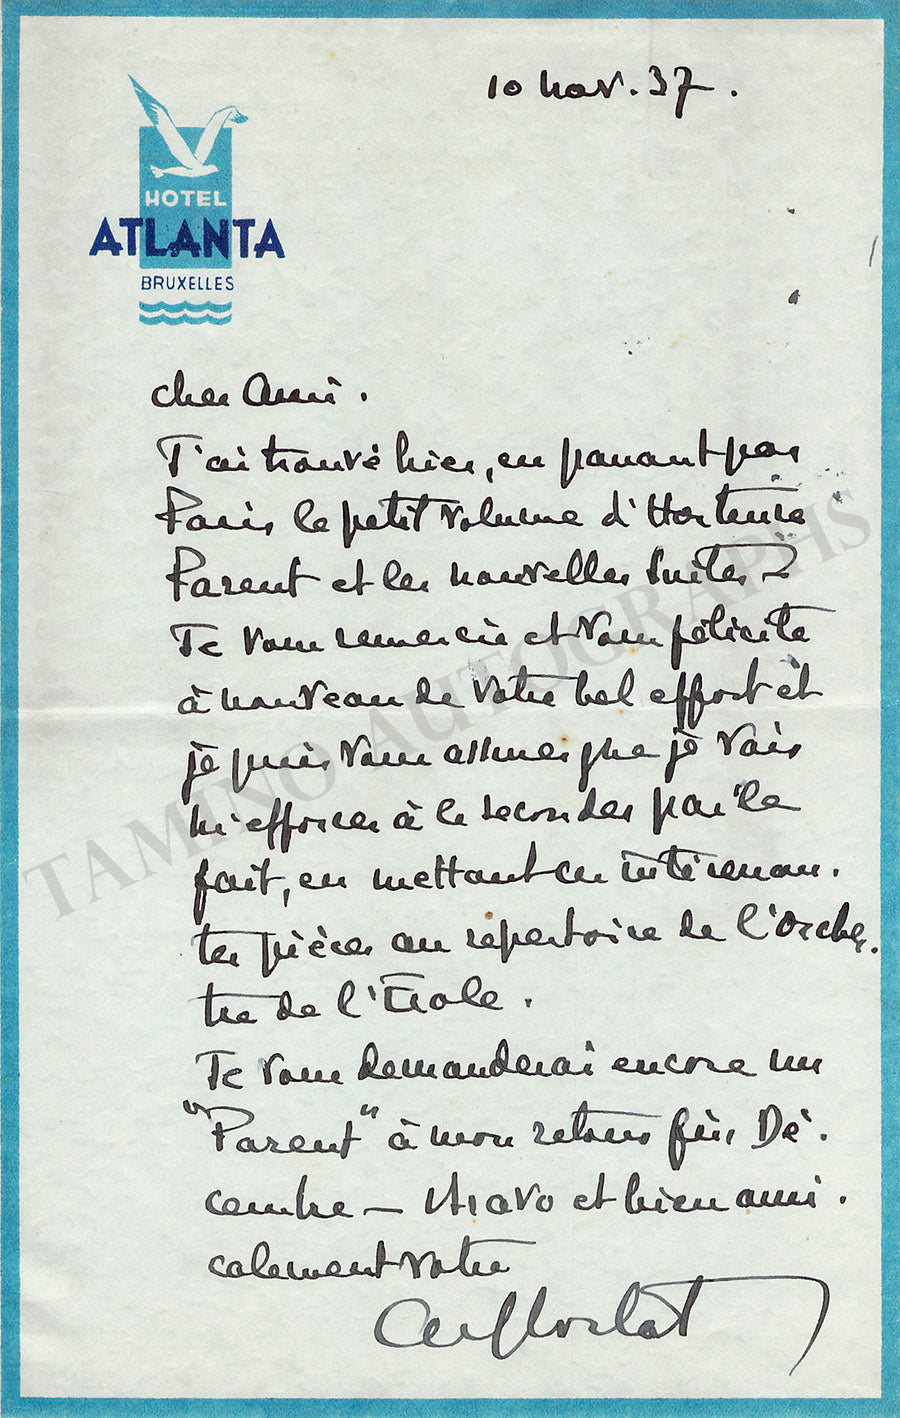 10 nov. 37.
HOTEL
ATLANTA
BRUXELLES
cher Ami.
J'ai trouvé hier, en passant par
Paris le petit volume d'Hortense
Parent et les nouvelles Suites —
Je vous remercie et vous félicite
à nouveau de votre bel effort et
je puis vous assurer que je vais
m'efforcer à le seconder par le
fait, en mettant ces intéressan.
tes pièces au répertoire de l'Orches.
tre de l'École.
Je vous demanderai encore un
"Parent" à mon retour fin Dé.
cembre — Bravo et bien ami.
calement votre
TAMINO AUTOGRAPHS